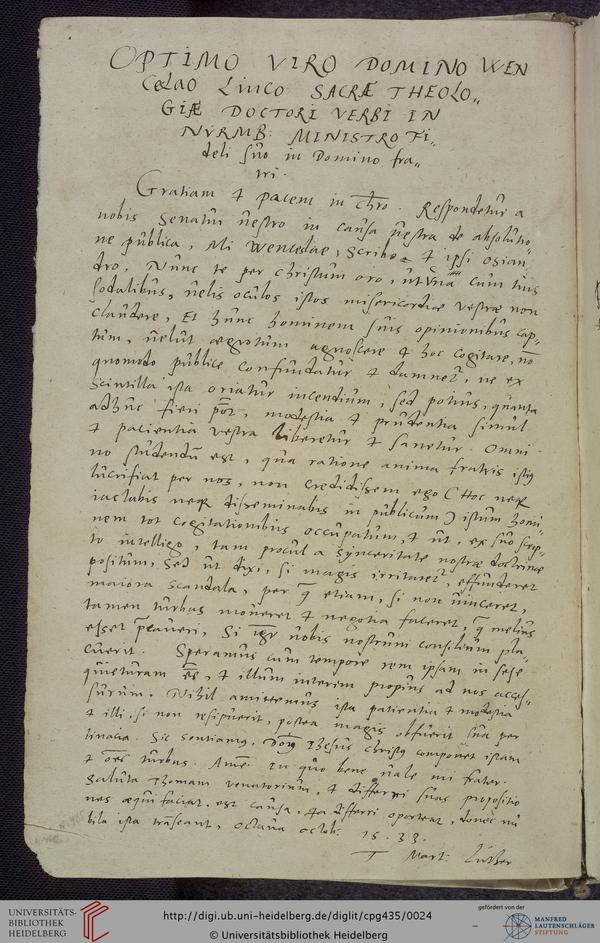 OPTIMO VIRO DOMINO WEN
CESLAO LINCO SACRÆ THEOLO„
GIÆ DOCTORI VERBI IN
NVRMB: MINISTRO FI„
deli suo in Domino fra„
tri.
Gratiam & pacem in chro. Respondetur a
nobis Senatui vestro in causa vestra de absolutio„
ne publica, Mi Wenceslae, scribo & ipsi Osian„
dro, Nunc te per Christum oro, ut una cum tuis
sodalibus, velis oculos istos misericordiæ vestræ non
claudere, Et hunc hominem suis opinionibus cap„
tum, velut ægrotum agnoscere & hoc cogitare, no
quomodo publice confundatur & damnet, ne ex
scintilla ista oriatur incendium, sed potius, quanta
adhuc fieri pot, modestia & prudentia simul
& pacientia vestra liberetur & sanetur. Omni
no studendu est, qua ratione anima fratris istius
lucrifiat per nos, non credidissem ego (Hoc neq
iactabis neq disseminabis in publicum) istum homi„
nem tot cogitationibus occupatum, & ut ex suo scrip„
to intelligo, tam procul a synceritate nostræ doctrinæ
positum, Sed ut dixi, si magis irritaret, effunderet
maiora scandala, per q etiam, si non vinceret,
tamen turbas moveret & negotia faceret, q melius
esset præcaveri, Si igr vobis nostrum consilium pla„
cuerit. Speramus cum tempore rem ipsam in sese
quieturam ee, & illum interim propius ad nos acces„
surum. Nihil amittemus ista patientia & modestia
& illi, si non resipuerit, postea magis obfuerit sua per
tinacia. Sic sentiamus, Dominus Ihesus christus componet istam
& oes turbas. Ame. In quo bene vale mi frater.
Saluta Thomam venatorium, & differri suas propositio
nes æqui faciat, est causa, differri oporteat, donec nu
bila ista transeant, octava octob: 1533.
T Mart: Luther
UNIVERSITÄTS-
BIBLIOTHEK
HEIDELBERG
http://digi.ub.uni-heidelberg.de/diglit/cpg435/0024
© Universitätsbibliothek Heidelberg
gefördert von der
MANFRED
LAUTENSCHLÄGER
STIFTUNG